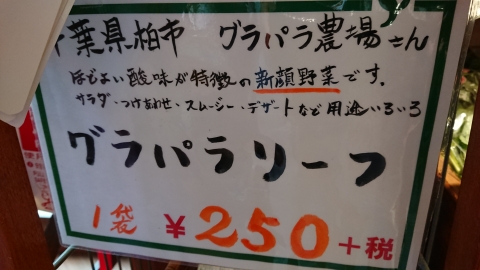 千葉県柏市 グラパラ農場さん
ほどよい酸味が特徴の新顔野菜です。
サラダ・つけあわせ・スムージー・デザートなど用途いろいろ
グラパラリーフ
1袋 ¥250+税